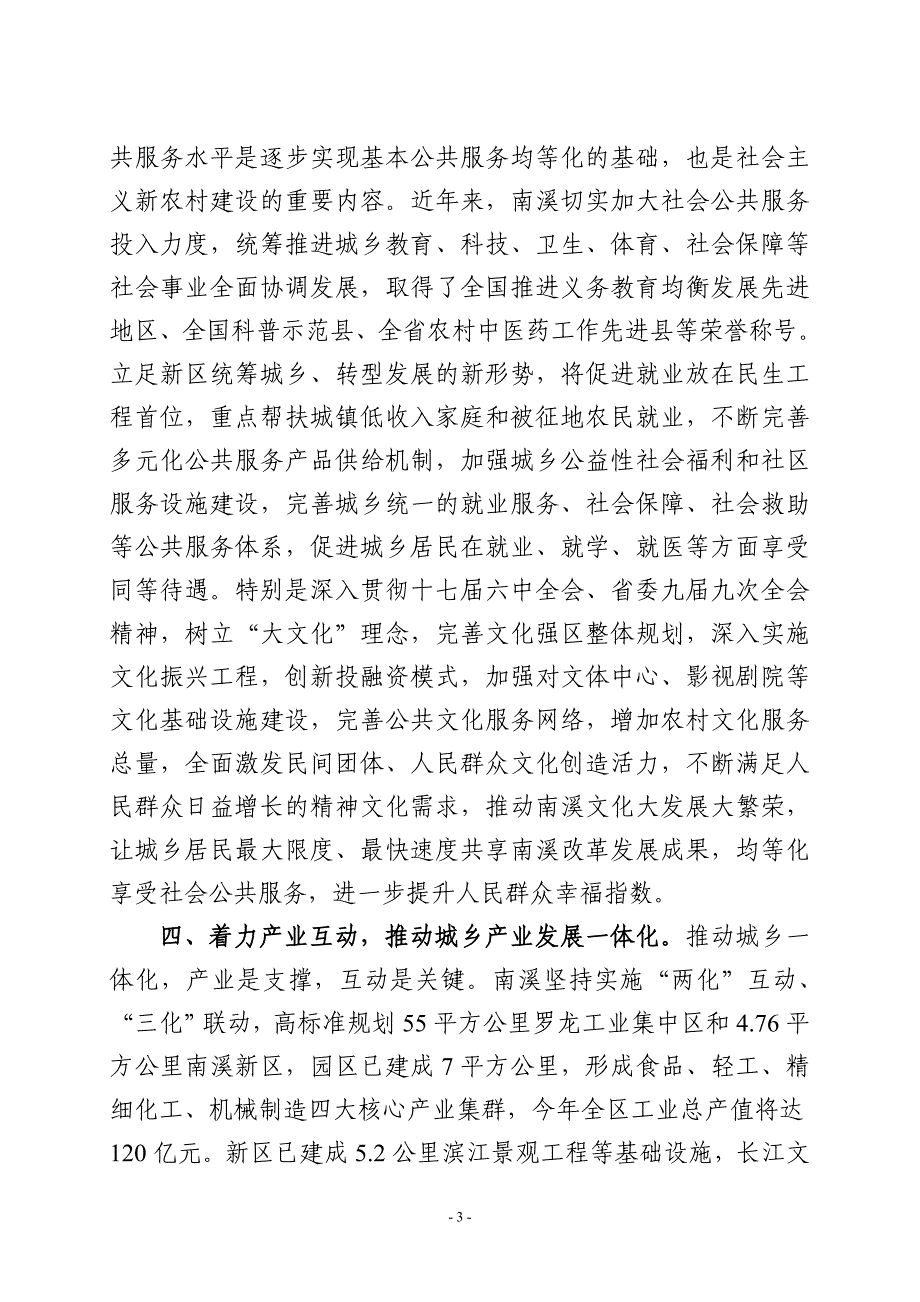 共服务水平是逐步实现基本公共服务均等化的基础，也是社会主
义新农村建设的重要内容。近年来，南溪切实加大社会公共服务
投入力度，统筹推进城乡教育、科技、卫生、体育、社会保障等
社会事业全面协调发展，取得了全国推进义务教育均衡发展先进
地区、全国科普示范县、全省农村中医药工作先进县等荣誉称号。
立足新区统筹城乡、转型发展的新形势，将促进就业放在民生工
程首位，重点帮扶城镇低收入家庭和被征地农民就业，不断完善
多元化公共服务产品供给机制，加强城乡公益性社会福利和社区
服务设施建设，完善城乡统一的就业服务、社会保障、社会救助
等公共服务体系，促进城乡居民在就业、就学、就医等方面享受
同等待遇。特别是深入贯彻十七届六中全会、省委九届九次全会
精神，树立“大文化”理念，完善文化强区整体规划，深入实施
文化振兴工程，创新投融资模式，加强对文体中心、影视剧院等
文化基础设施建设，完善公共文化服务网络，增加农村文化服务
总量，全面激发民间团体、人民群众文化创造活力，不断满足人
民群众日益增长的精神文化需求，推动南溪文化大发展大繁荣，
让城乡居民最大限度、最快速度共享南溪改革发展成果，均等化
享受社会公共服务，进一步提升人民群众幸福指数。
四、着力产业互动，推动城乡产业发展一体化。推动城乡一
体化，产业是支撑，互动是关键。南溪坚持实施“两化”互动、
“三化”联动，高标准规划 55 平方公里罗龙工业集中区和 4.76 平
方公里南溪新区，园区已建成 7 平方公里，形成食品、轻工、精
细化工、机械制造四大核心产业集群，今年全区工业总产值将达
120 亿元。新区已建成 5.2 公里滨江景观工程等基础设施，长江文
- 3 -